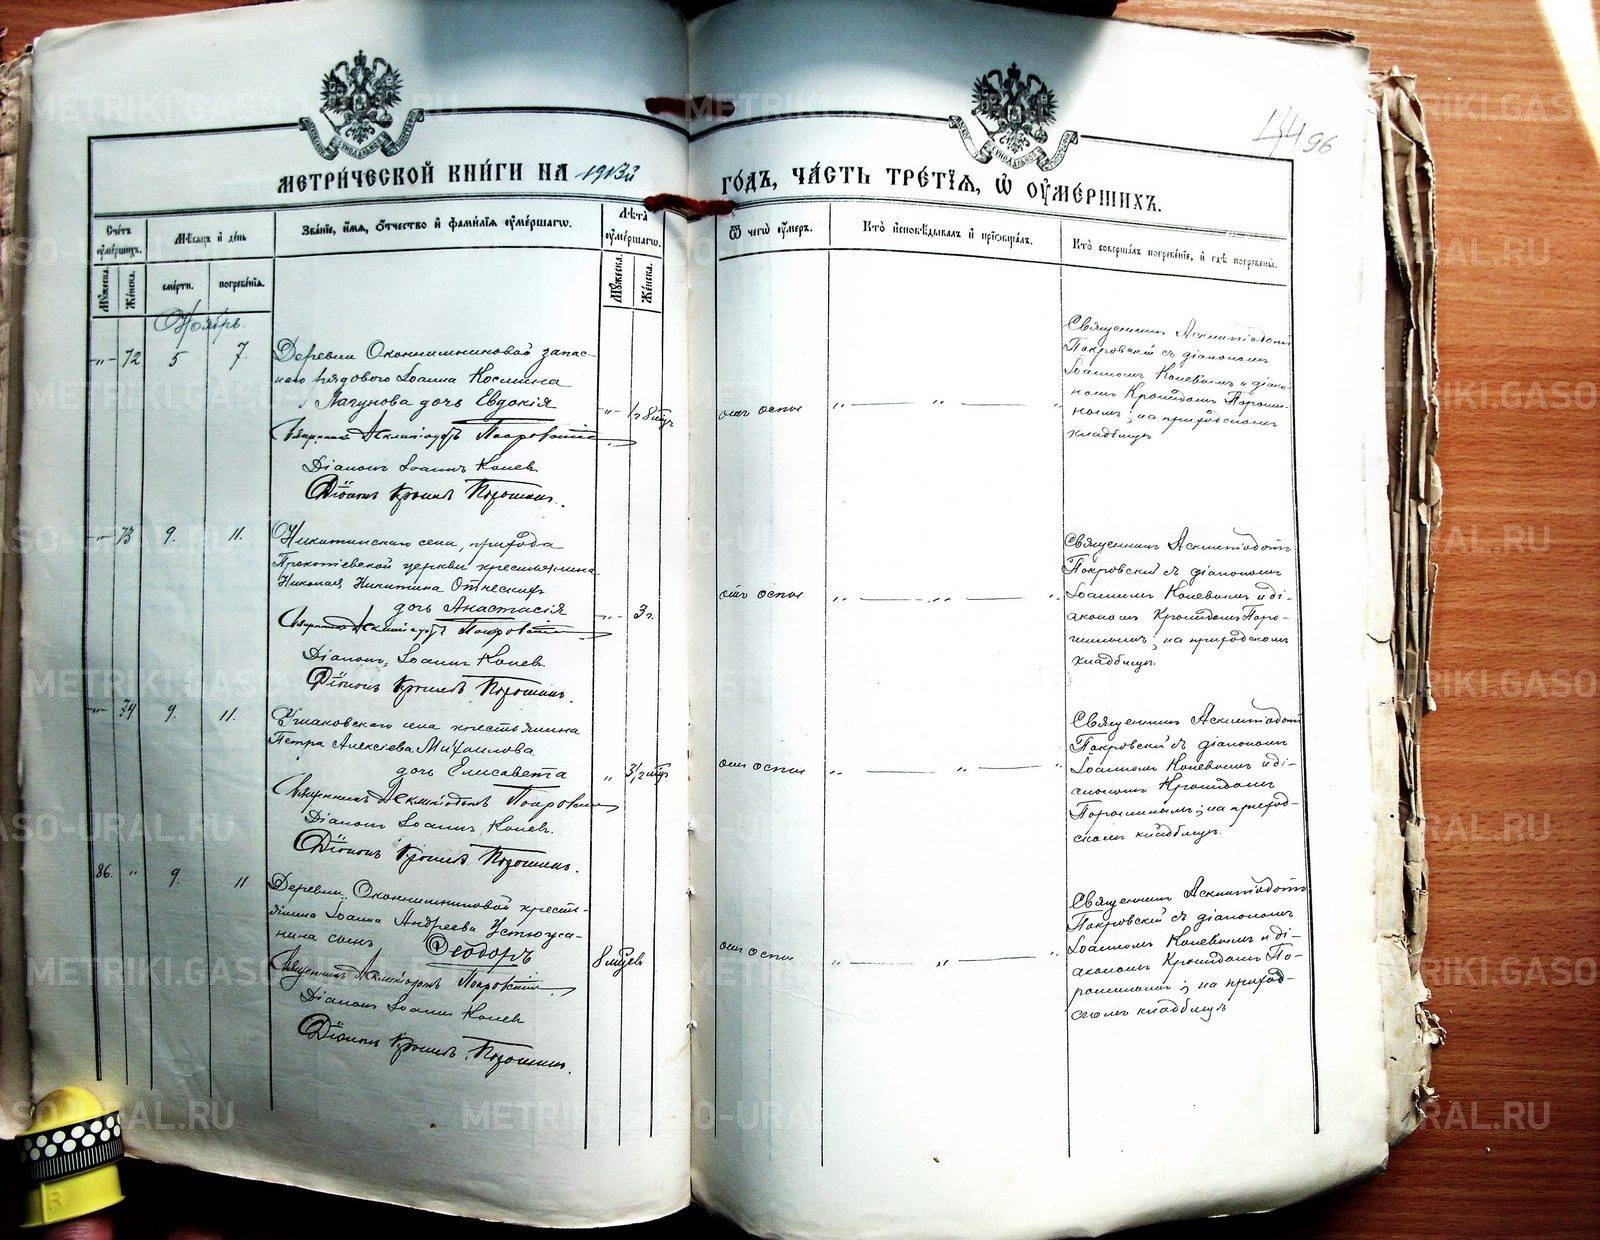 МЕТРИ́ЧЕСКОЙ КНИ́ГИ НА 1913й
ГОДЪ, ЧА́СТЬ ТРЕ́ТЇѦ, Ѡ҆ ОУ҆МЕ́РШИХЪ.
144 96
Сче́тъ оу҆ме́ршихъ.
Мѣ́сѧцъ и҆ де́нь
Зва́нїе, и҆́мѧ, ѻ҆́тчество и҆ фами́лїѧ оу҆ме́ршагѡ.
Лѣ́та оу҆ме́ршагѡ.
Ѿ чегѡ̀ оу҆́меръ.
Кто̀ и҆сповѣ́дывалъ и҆ прїѡбща́лъ.
Кто̀ соверша́лъ погребе́нїе, и҆ гдѣ̀ погребены̀.
Му́жеска.
Же́нска.
сме́рти.
погребе́нїѧ.
Му́жеска.
Же́нска.
Ноябрь.
-„- 72 5 7.
Деревни Оконишниковой запас-
наго рядового Іоанна Космина
Лагунова дочь Евдокія
-„- 1 г 8 мцъ
отъ оспы
„ — „ — „
Священникъ Асклипіодотъ Покровскій
Діаконъ Іоаннъ Коневъ
Діаконъ Кронидъ Порошинъ.
Священникъ Асклипіодотъ
Покровскій съ діакономъ
Іоанномъ Коневымъ и діако-
номъ Кронидомъ Порошин-
нымъ; на приходскомъ
кладбищѣ
-„- 73 9. 11.
Никитинскаго села, прихода
Прокопіевской церкви крестьянина
Николая Никитина
дочь Анастасія
-„- 3 г.
отъ оспы
„ — „ — „
Священникъ Асклипіодотъ Покровскій
Діаконъ Іоаннъ Коневъ
Діаконъ Кронидъ Порошинъ.
Священникъ Асклипіодотъ
Покровскій съ діакономъ
Іоанномъ Коневымъ и ді-
акономъ Кронидомъ Поро-
шинымъ; на приходскомъ
кладбищѣ.
-„- 74 9. 11.
Ушаковскаго села крестьянина
Петра Алексіева Михаилова
дочь Елисавета
„ 3½ мцъ
отъ оспы
„ — „ — „
Священникъ Асклипіодотъ Покровскій
Діаконъ Іоаннъ Коневъ.
Діаконъ Кронидъ Порошинъ.
Священникъ Асклипіодотъ
Покровскій съ діакономъ
Іоанномъ Коневымъ и ді-
акономъ Кронидомъ
Порошинымъ; на приход-
скомъ кладбищѣ.
86. „ 9. 11
Деревни Оконишниковой кресть-
янина Іоанна Андреева Устюжа-
нина сынъ Ѳеодоръ
8 мцевъ
отъ оспы
„ — „ — „
Священникъ Асклипіодотъ Покровскій
Діаконъ Іоаннъ Коневъ
Діаконъ Кронидъ Порошинъ.
Священникъ Асклипіодотъ
Покровскій съ діакономъ
Іоанномъ Коневымъ и ді-
акономъ Кронидомъ По-
рошинымъ; на приход-
скомъ кладбищѣ
METRIKI.GASO-URAL.RU